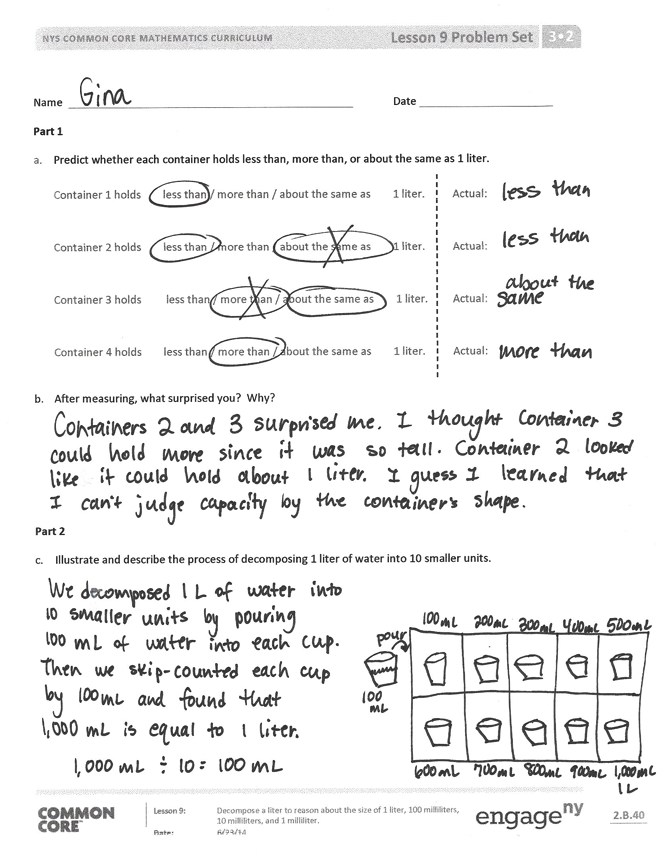 NYS COMMON CORE MATHEMATICS CURRICULUM Lesson 9 Problem Set 3•2
Name Gina Date
Part 1
a. Predict whether each container holds less than, more than, or about the same as 1 liter.
Container 1 holds less than / more than / about the same as 1 liter. Actual: less than
Container 2 holds less than / more than / about the same as 1 liter. Actual: less than
about the
Container 3 holds less than / more than / about the same as 1 liter. Actual: same
Container 4 holds less than / more than / about the same as 1 liter. Actual: more than
b. After measuring, what surprised you? Why?
Containers 2 and 3 surprised me. I thought Container 3
could hold more since it was so tall. Container 2 looked
like it could hold about 1 liter. I guess I learned that
I can't judge capacity by the container's shape.
Part 2
c. Illustrate and describe the process of decomposing 1 liter of water into 10 smaller units.
We decomposed 1 L of water into
10 smaller units by pouring
100 mL of water into each cup.
Then we skip-counted each cup
by 100 mL and found that
1,000 mL is equal to 1 liter.
1,000 mL ÷ 10 = 100 mL
100 mL 200 mL 300 mL 400 mL 500 mL
pour
100
mL
600 mL 700 mL 800 mL 900 mL 1,000 mL
1L
COMMON
CORE™
Lesson 9: Decompose a liter to reason about the size of 1 liter, 100 milliliters,
10 milliliters, and 1 milliliter.
Date: 8/23/14
engage ny
2.B.40